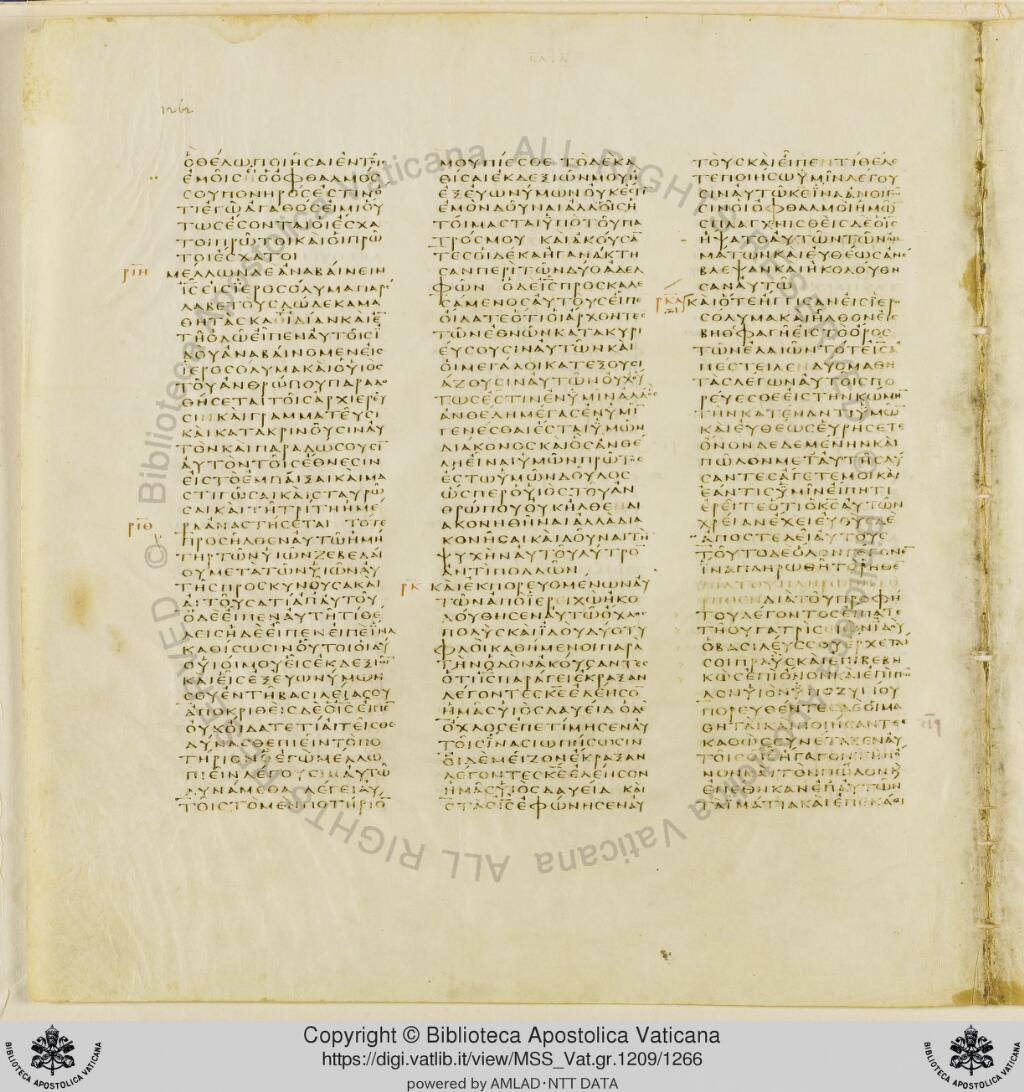 1262
ΟΘΕΛΩΠΟΙΗϹΑΙΕΝΤΟΙϹ
ΕΜΟΙϹΗΟΟΦΘΑΛΜΟϹ
ϹΟΥΠΟΝΗΡΟϹΕϹΤΙΝΟ
ΤΙΕΓΩΑΓΑΘΟϹΕΙΜΙΟΥ
ΤΩϹΕϹΟΝΤΑΙΟΙΕϹΧΑ
ΤΟΙΠΡΩΤΟΙΚΑΙΟΙΠΡΩ
ΤΟΙΕϹΧΑΤΟΙ
ΡΙΗ ΜΕΛΛΩΝΔΕΑΝΑΒΑΙΝΕΙΝ
ΙϹΕΙϹΙΕΡΟϹΟΛΥΜΑΠΑΡΕ
ΛΑΒΕΤΟΥϹΔΩΔΕΚΑΜΑ
ΘΗΤΑϹΚΑΘΙΔΙΑΝΚΑΙΕ
ΤΗΟΔΩΕΙΠΕΝΑΥΤΟΙϹΙ
ΔΟΥΑΝΑΒΑΙΝΟΜΕΝΕΙϹ
ΙΕΡΟϹΟΛΥΜΑΚΑΙΟΥΙΟϹ
ΤΟΥΑΝΘΡΩΠΟΥΠΑΡΑΔΟ
ΘΗϹΕΤΑΙΤΟΙϹΑΡΧΙΕΡΕΥ
ϹΙΝΚΑΙΓΡΑΜΜΑΤΕΥϹΙ
ΚΑΙΚΑΤΑΚΡΙΝΟΥϹΙΝΑΥ
ΤΟΝΚΑΙΠΑΡΑΔΩϹΟΥϹΙ
ΑΥΤΟΝΤΟΙϹΕΘΝΕϹΙΝ
ΕΙϹΤΟΕΜΠΑΙΞΑΙΚΑΙΜΑ
ϹΤΙΓΩϹΑΙΚΑΙϹΤΑΥΡΩ
ϹΑΙΚΑΙΤΗΤΡΙΤΗΗΜΕ
ΡΙΘ ΡΑΑΝΑϹΤΗϹΕΤΑΙ ΤΟΤΕ
ΠΡΟϹΗΛΘΕΝΑΥΤΩΗΜΗ
ΤΗΡΤΩΝΥΙΩΝΖΕΒΕΔΑΙ
ΟΥΜΕΤΑΤΩΝΥΙΩΝΑΥ
ΤΗϹΠΡΟϹΚΥΝΟΥϹΑΚΑΙ
ΑΙΤΟΥϹΑΤΙΑΠΑΥΤΟΥ
ΟΔΕΕΙΠΕΝΑΥΤΗΤΙΘΕ
ΛΕΙϹΗΔΕΕΙΠΕΝΕΙΠΕΙΝΑ
ΚΑΘΙϹΩϹΙΝΟΥΤΟΙΟΙΔΥ
ΟΥΙΟΙΜΟΥΕΙϹΕΚΔΕΞΙΩ
ΚΑΙΕΙϹΕΞΕΥΩΝΥΜΩΝ
ϹΟΥΕΝΤΗΒΑϹΙΛΕΙΑϹΟΥ
ΑΠΟΚΡΙΘΕΙϹΔΕΟΙϹΕΙΠΕ
ΟΥΚΟΙΔΑΤΕΤΙΑΙΤΕΙϹΘΕ
ΔΥΝΑϹΘΕΠΙΕΙΝΤΟΠΟ
ΤΗΡΙΟΝΟΕΓΩΜΕΛΛΩ
ΠΙΕΙΝΛΕΓΟΥϹΙΝΑΥΤΩ
ΔΥΝΑΜΕΘΑ ΛΕΓΕΙΑΥ
ΤΟΙϹΤΟΜΕΝΠΟΤΗΡΙΟ
ΜΟΥΠΙΕϹΘΕ ΤΟΔΕΚΑ
ΘΙϹΑΙΕΚΔΕΞΙΩΝΜΟΥΗ
ΕΞΕΥΩΝΥΜΩΝΟΥΚΕϹΤΙ
ΕΜΟΝΔΟΥΝΑΙΑΛΛΟΙϹΗ
ΤΟΙΜΑϹΤΑΙΥΠΟΤΟΥΠΑ
ΤΡΟϹΜΟΥ ΚΑΙΑΚΟΥϹΑ
ΤΕϹΟΙΔΕΚΑΗΓΑΝΑΚΤΗ
ϹΑΝΠΕΡΙΤΩΝΔΥΟΑΔΕΛ
ΦΩΝ ΟΔΕΙϹΠΡΟϹΚΑΛΕ
ϹΑΜΕΝΟϹΑΥΤΟΥϹΕΙΠΕ
ΟΙΔΑΤΕΟΤΙΟΙΑΡΧΟΝΤΕϹ
ΤΩΝΕΘΝΩΝΚΑΤΑΚΥΡΙ
ΕΥϹΟΥϹΙΝΑΥΤΩΝΚΑΙ
ΟΙΜΕΓΑΛΟΙΚΑΤΕΞΟΥϹΙ
ΑΖΟΥϹΙΝΑΥΤΩΝΟΥΧΟΥ
ΤΩϹΕϹΤΙΝΕΝΥΜΙΝΑΛΛΟϹ
ΑΝΘΕΛΗΜΕΓΑϹΕΝΥΜΙ
ΓΕΝΕϹΘΑΙΕϹΤΑΙΥΜΩΝ
ΔΙΑΚΟΝΟϹΚΑΙΟϹΑΝΘΕ
ΛΗΕΙΝΑΙΥΜΩΝΠΡΩΤΟϹ
ΕϹΤΩΥΜΩΝΔΟΥΛΟϹ
ΩϹΠΕΡΟΥΙΟϹΤΟΥΑΝ
ΘΡΩΠΟΥΟΥΚΗΛΘΕΔΙ
ΑΚΟΝΗΘΗΝΑΙΑΛΛΑΔΙΑ
ΚΟΝΗϹΑΙΚΑΙΔΟΥΝΑΙΤΗ
ΨΥΧΗΝΑΥΤΟΥΛΥΤΡΟ
ΑΝΤΙΠΟΛΛΩΝ
ΡΚ ΚΑΙΕΚΠΟΡΕΥΟΜΕΝΩΝΑΥ
ΤΩΝΑΠΟΙΕΡΕΙΧΩΗΚΟ
ΛΟΥΘΗϹΕΝΑΥΤΩΟΧΛΟϹ
ΠΟΛΥϹΚΑΙΙΔΟΥΔΥΟΤΥ
ΦΛΟΙΚΑΘΗΜΕΝΟΙΠΑΡΑ
ΤΗΝΟΔΟΝΑΚΟΥϹΑΝΤΕϹ
ΟΤΙΙϹΠΑΡΑΓΕΙΕΚΡΑΞΑΝ
ΛΕΓΟΝΤΕϹΚΕΕΛΕΗϹΟ
ΗΜΑϹΥΙΟϹΔΑΥΕΙΔ ΟΔΕ
ΟΧΛΟϹΕΠΕΤΙΜΗϹΕΝΑΥ
ΤΟΙϹΙΝΑϹΙΩΠΗϹΩϹΙΝ
ΟΙΔΕΜΕΙΖΟΝΕΚΡΑΞΑΝ
ΛΕΓΟΝΤΕϹΚΕΕΛΕΗϹΟΝ
ΗΜΑϹΥΙΟϹΔΑΥΕΙΔ ΚΑΙ
ϹΤΑϹΙϹΕΦΩΝΗϹΕΝΑΥ
ΤΟΥϹΚΑΙΕΙΠΕΝΤΙΘΕΛΕ
ΤΕΠΟΙΗϹΩΥΜΙΝΛΕΓΟΥ
ϹΙΝΑΥΤΩΚΕΙΝΑΑΝΟΙΓΩ
ϹΙΝΟΙΟΦΘΑΛΜΟΙΗΜΩ
ϹΠΛΑΓΧΝΙϹΘΕΙϹΔΕΟΙϹ
ΗΨΑΤΟΑΥΤΩΝΤΩΝΟΜ
ΜΑΤΩΝΚΑΙΕΥΘΕΩϹΑΝΕ
ΒΛΕΨΑΝΚΑΙΗΚΟΛΟΥΘΗ
ϹΑΝΑΥΤΩ
ΡΚΑ ΚΑΙΟΤΕΗΓΓΙϹΑΝΕΙϹΙΕΡ
ϹΟΛΥΜΑΚΑΙΗΛΘΟΝΕΙϹ
ΒΗΘΦΑΓΗΕΙϹΤΟΟΡΟϹ
ΤΩΝΕΛΑΙΩΝΤΟΤΕΙϹΑ
ΠΕϹΤΕΙΛΕΝΔΥΟΜΑΘΗ
ΤΑϹΛΕΓΩΝΑΥΤΟΙϹΠΟ
ΡΕΥΕϹΘΕΕΙϹΤΗΝΚΩΜΗ
ΤΗΝΚΑΤΕΝΑΝΤΙΥΜΩ
ΚΑΙΕΥΘΕΩϹΕΥΡΗϹΕΤΕ
ΟΝΟΝΔΕΔΕΜΕΝΗΝΚΑΙ
ΠΩΛΟΝΜΕΤΑΥΤΗϹΛΥ
ϹΑΝΤΕϹΑΓΕΤΕΜΟΙΚΑΙ
ΕΑΝΤΙϹΥΜΙΝΕΙΠΗΤΙ
ΕΡΕΙΤΕΟΤΙΟΚϹΑΥΤΩΝ
ΧΡΕΙΑΝΕΧΕΙΕΥΘΥϹΔΕ
ΑΠΟϹΤΕΛΕΙΑΥΤΟΥϹ
ΤΟΥΤΟΔΕΟΛΟΝΓΕΓΟΝΕ
ΙΝΑΠΛΗΡΩΘΗΤΟΡΗΘΕ
ΔΙΑΤΟΥΠΡΟΦΗ
ΤΟΥΛΕΓΟΝΤΟϹΕΙΠΑΤΕ
ΤΗΘΥΓΑΤΡΙϹΙΩΝΙΔΟΥ
ΟΒΑϹΙΛΕΥϹϹΟΥΕΡΧΕΤΑΙ
ϹΟΙΠΡΑΥϹΚΑΙΕΠΙΒΕΒΗ
ΚΩϹΕΠΙΟΝΟΝΚΑΙΕΠΙΠΩ
ΛΟΝΥΙΟΝΥΠΟΖΥΓΙΟΥ
ΠΟΡΕΥΘΕΝΤΕϹΔΕΟΙΜΑ
ΘΗΤΑΙΚΑΙΠΟΙΗϹΑΝΤΕϹ
ΚΑΘΩϹϹΥΝΕΤΑΞΕΝΑΥ
ΤΟΙϹΟΙϹΗΓΑΓΟΝΤΗΝΟ
ΝΟΝΚΑΙΤΟΝΠΩΛΟΝΚ
ΕΠΕΘΗΚΑΝΕΠΑΥΤΩΝ
ΤΑΙΜΑΤΙΑΚΑΙΕΠΕΚΑΘΙ
© Biblioteca Apostolica Vaticana ALL RIGHTS RESERVED
BIBLIOTECA APOSTOLICA VATICANA
Copyright © Biblioteca Apostolica Vaticana
https://digi.vatlib.it/view/MSS_Vat.gr.1209/1266
powered by AMLAD·NTT DATA
BIBLIOTECA APOSTOLICA VATICANA